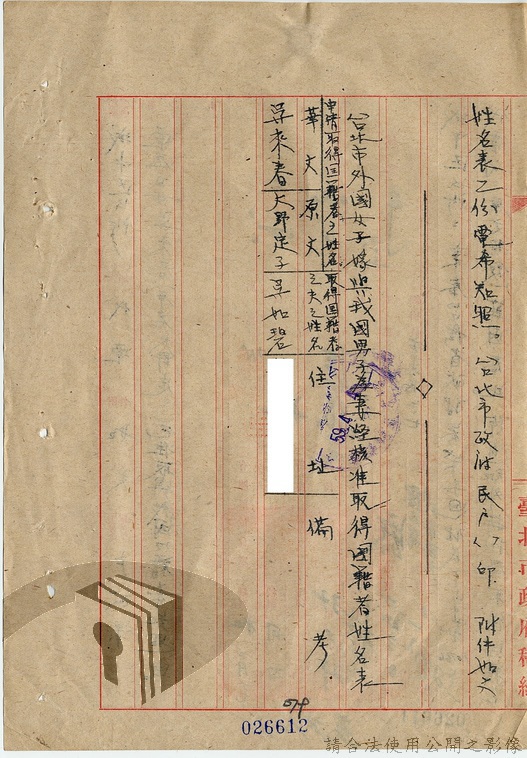 姓名表乙份電希知照。台北市政府民戶()印 附件如文
台北市外國女子嫁與我國男子為妻經核准取得國籍者姓名表
申請取得國籍者之姓名
取得國籍者之夫之姓名
華文
原文
住址
備考
吳來春
大野定子
吳如碧
臺北市政府稿紙
59.4.
579
026612
請合法使用公開之影像